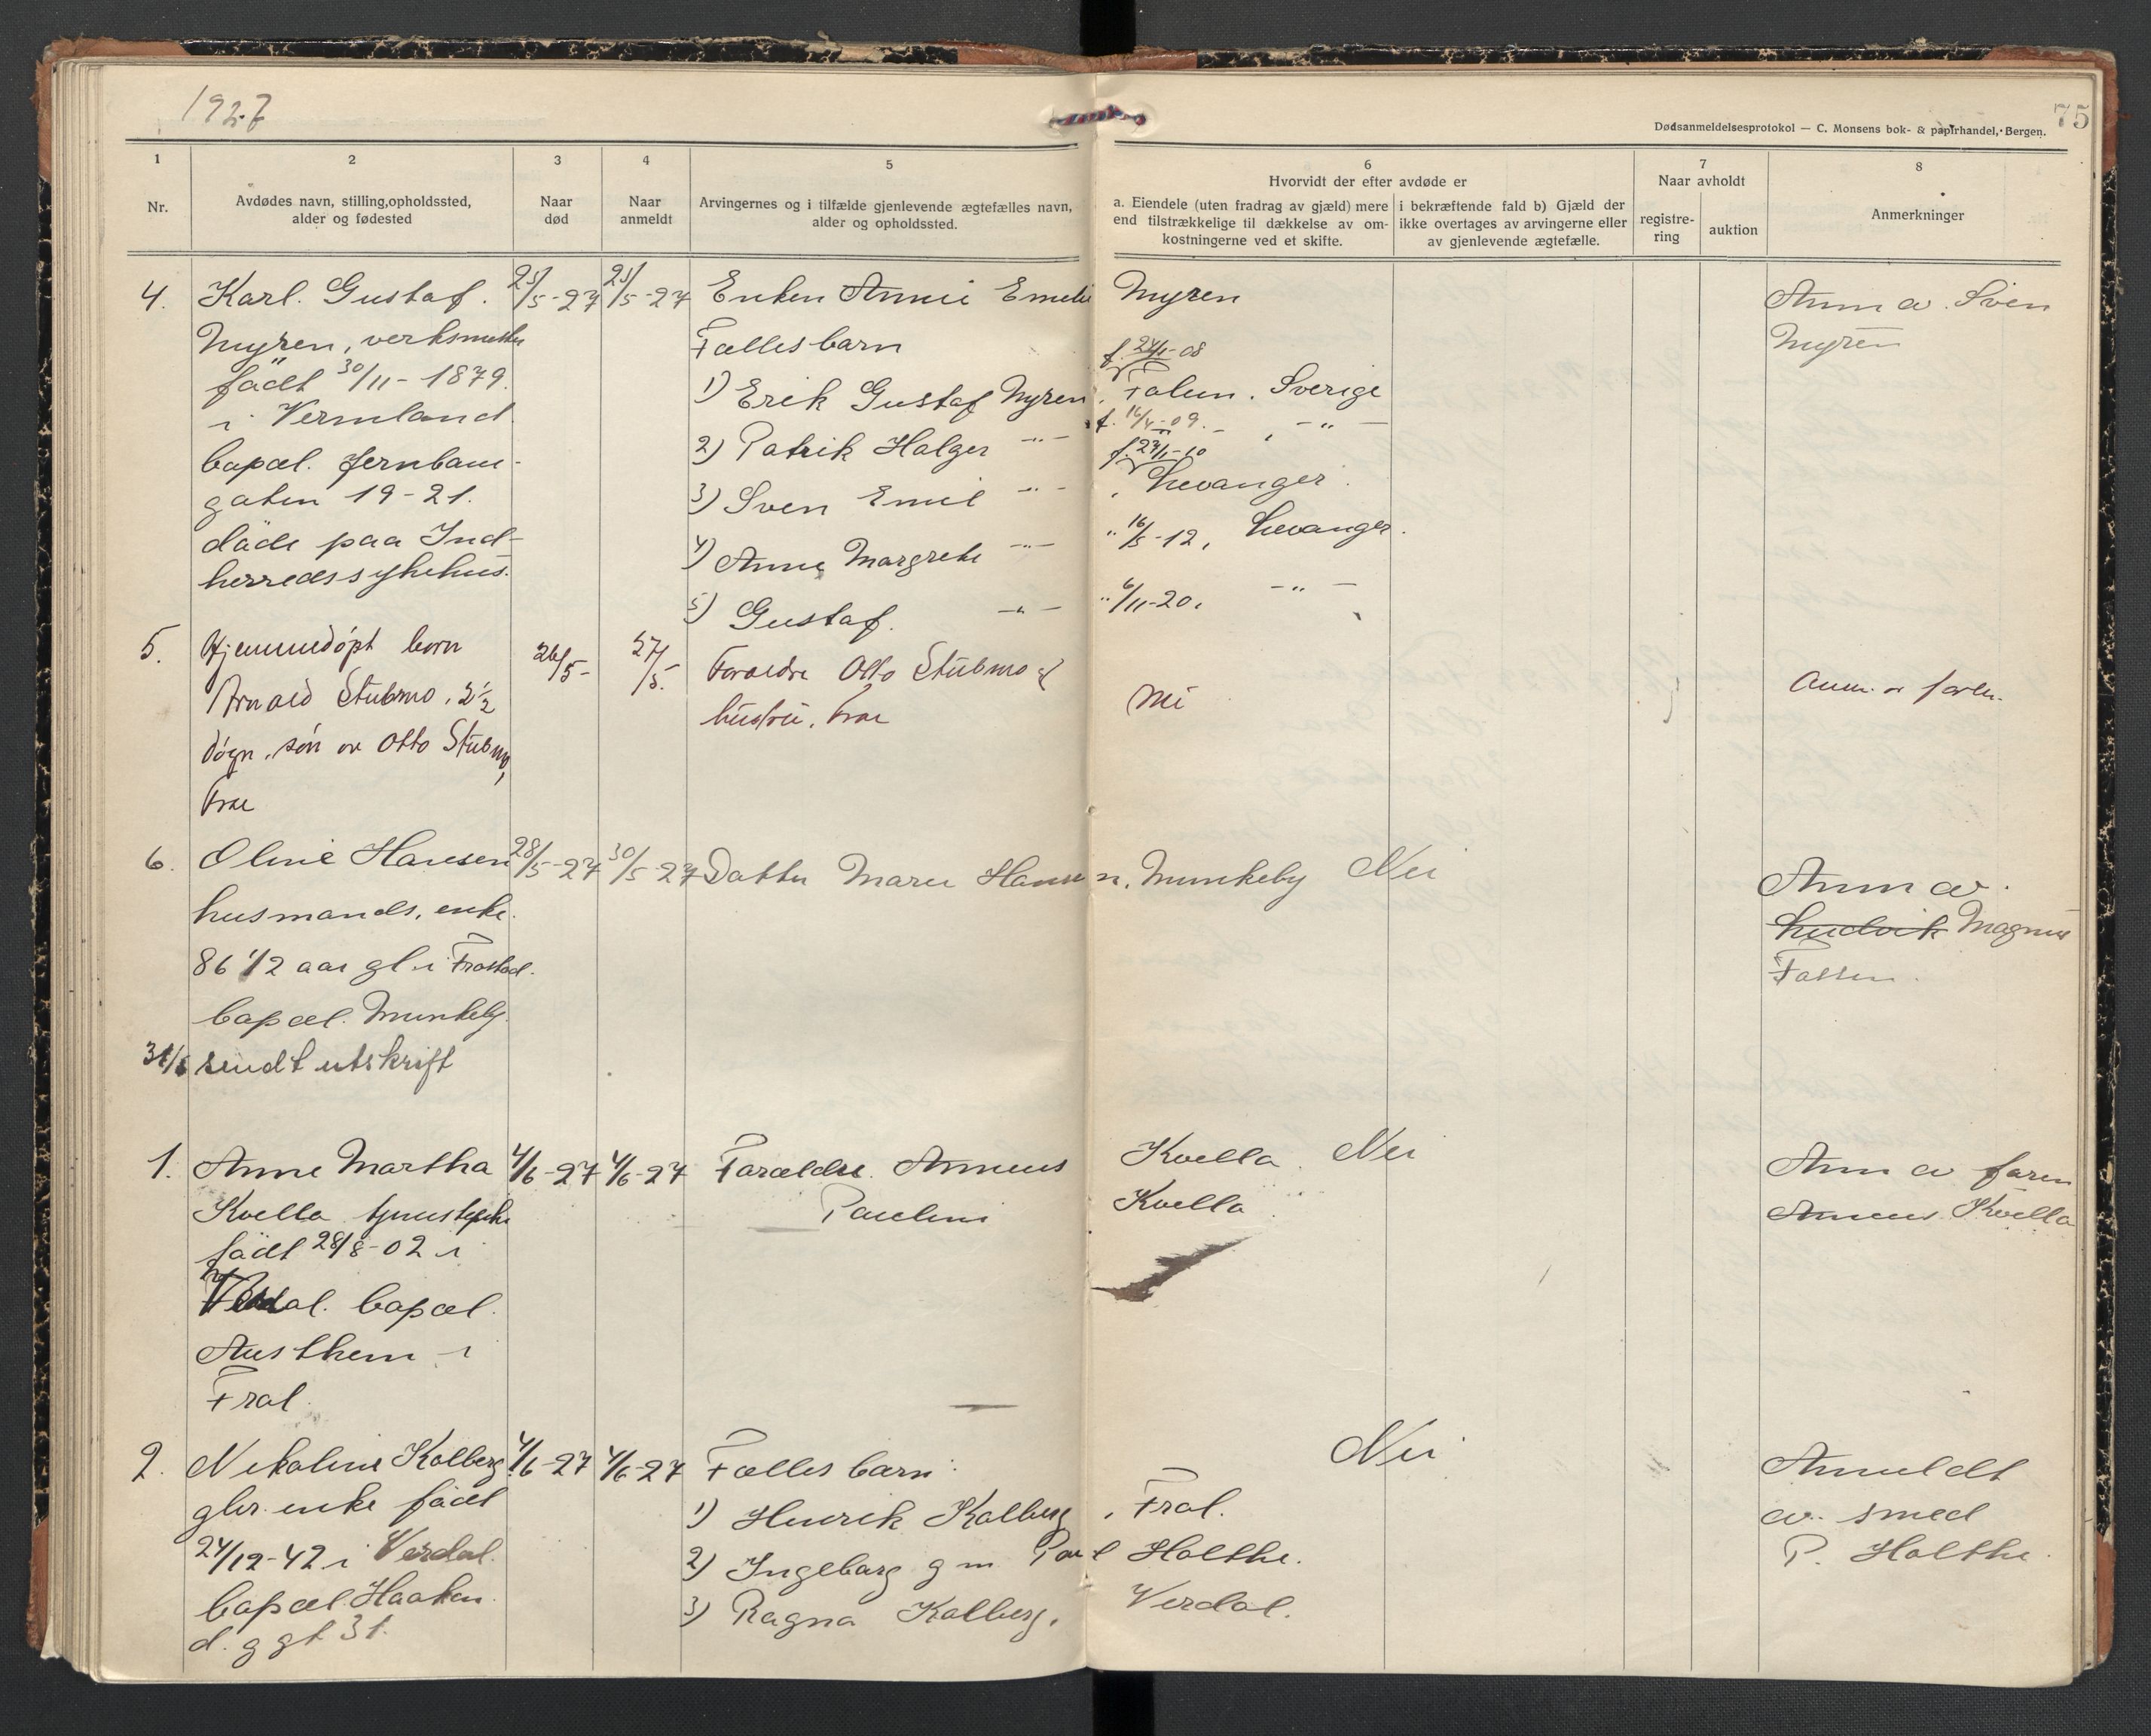 1927
75
Dødsanmeldelsesprotokol — C. Monsens bok- & papirhandel, Bergen.
1 2 3 4 5 6 7 8
Nr.
Avdødes navn, stilling, opholdssted,
alder og fødested
Naar
død
Naar
anmeldt
Arvingernes og i tilfælde gjenlevende ægtefælles navn,
alder og opholdssted.
Hvorvidt der efter avdøde er
a. Eiendele (uten fradrag av gjæld) mere
end tilstrækkelige til dækkelse av om-
kostningerne ved et skifte.
i bekræftende fald b) Gjæld der
ikke overtages av arvingerne eller
av gjenlevende ægtefælle.
Naar avholdt
registre-
ring
auktion
Anmerkninger
4. Karl Gustaf 25/5-27 25/5-27 Enken Anni Emelie Nyren Anm av Sven
Nyren, verksmester Fællesbarn Nyren
f. 24/1-08
født 30/11-1879. 1) Erik Gustaf Nyren, Falun. Sverige
i Vermland f. 16/4-09. - , -"-
bopæl. Jernbane- 2) Patrik Holger -"-
f. 27/1-10
gaten 19-21. 3) Sven Emil -"- , Levanger.
døde paa Ind- 4) Anna Margrete -"- " 16/5-12, Levanger.
herredssykehus. 5) Gustaf. -"- " 6/11-20, -"-
5. Hjemmedøpt barn 26/5- 27/5. Foreldre Otto Stubmo og
Arnold Stubmo, 2½ hustru, Frol Nei Anm. av faren.
døgn, søn av Otto Stubmo,
Frol
6. Oline Hansen 28/5-27 30/5-27 Datter Marie Hansen, Munkeby Nei Anm av
husmands. enke. Ludvik Magnus
86 1/2 aar gl. i Frostad.
bopæl. Munkeby.
31/5 sendt utskrift
1. Anne Martha 4/6-27 4/6-27 Forældre. Anneus Kvello. Nei Anm av faren
Kvello tjenestepike Paulini Kvello Anneus Kvello
født 28/8-02 i
Verdal. bopæl.
Austhem i
Frol.
2. Nikoline Kolberg 4/6-27 4/6-27 Fælles barn Nei Anmeldt
gbr. enke født 1) Henrik Kolberg, Frol. av. smed
24/12-42 i Verdal. 2) Ingeborg g m Paul Holthe. P. Holthe.
bopæl Haaken 3) Ragna Kolberg, Verdal.
d. g gt 31.